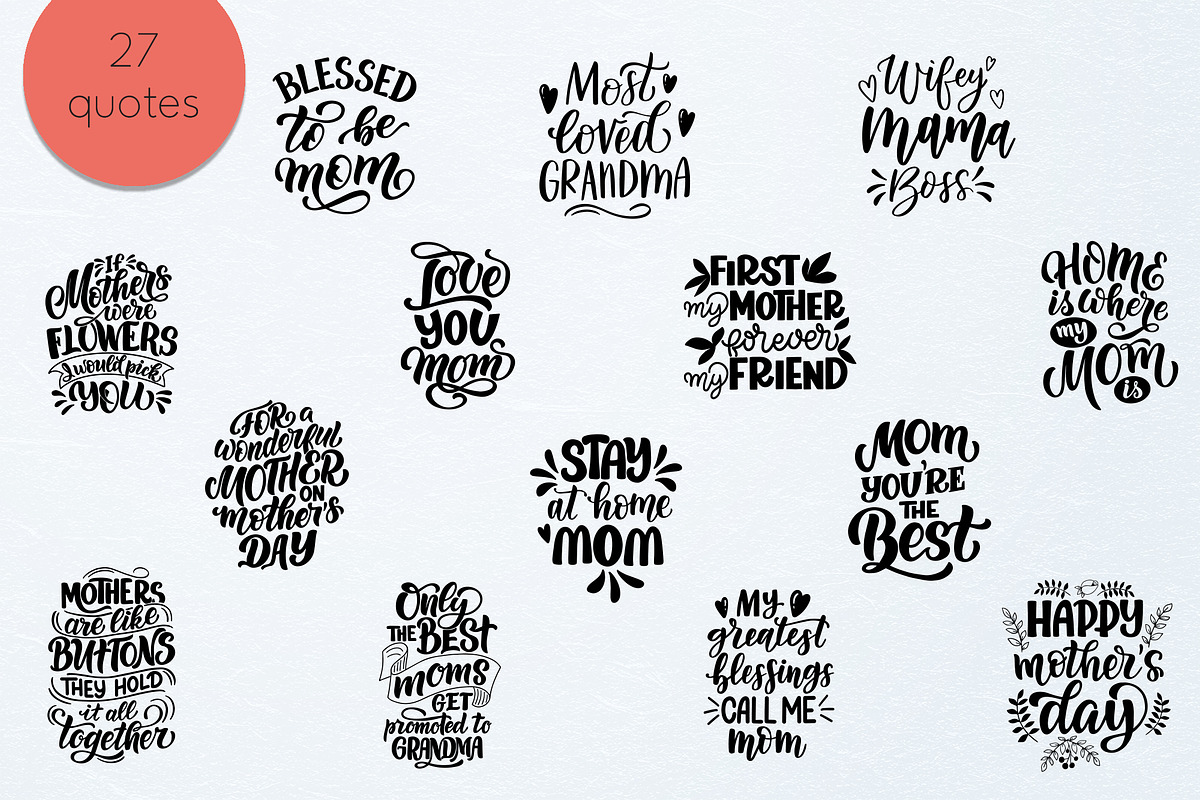 27
quotes
BLESSED
to be
mom
Most
loved
GRANDMA
Wifey
Mama
Boss
If
Mothers
were
FLOWERS
I would pick
YOU
Love
YOU
Mom
FIRST
my MOTHER
forever
my FRIEND
HOME
is where
my
MOM
is
FOR a
wonderful
MOTHER
ON
mother's
DAY
STAY
at home
MOM
MOM
YOU'RE
THE
Best
MOTHERS
are like
BUTTONS
THEY HOLD
it all
together
Only
THE BEST
moms
GET
promoted to
GRANDMA
MY
greatest
blessings
CALL ME
mom
HAPPY
mother's
day